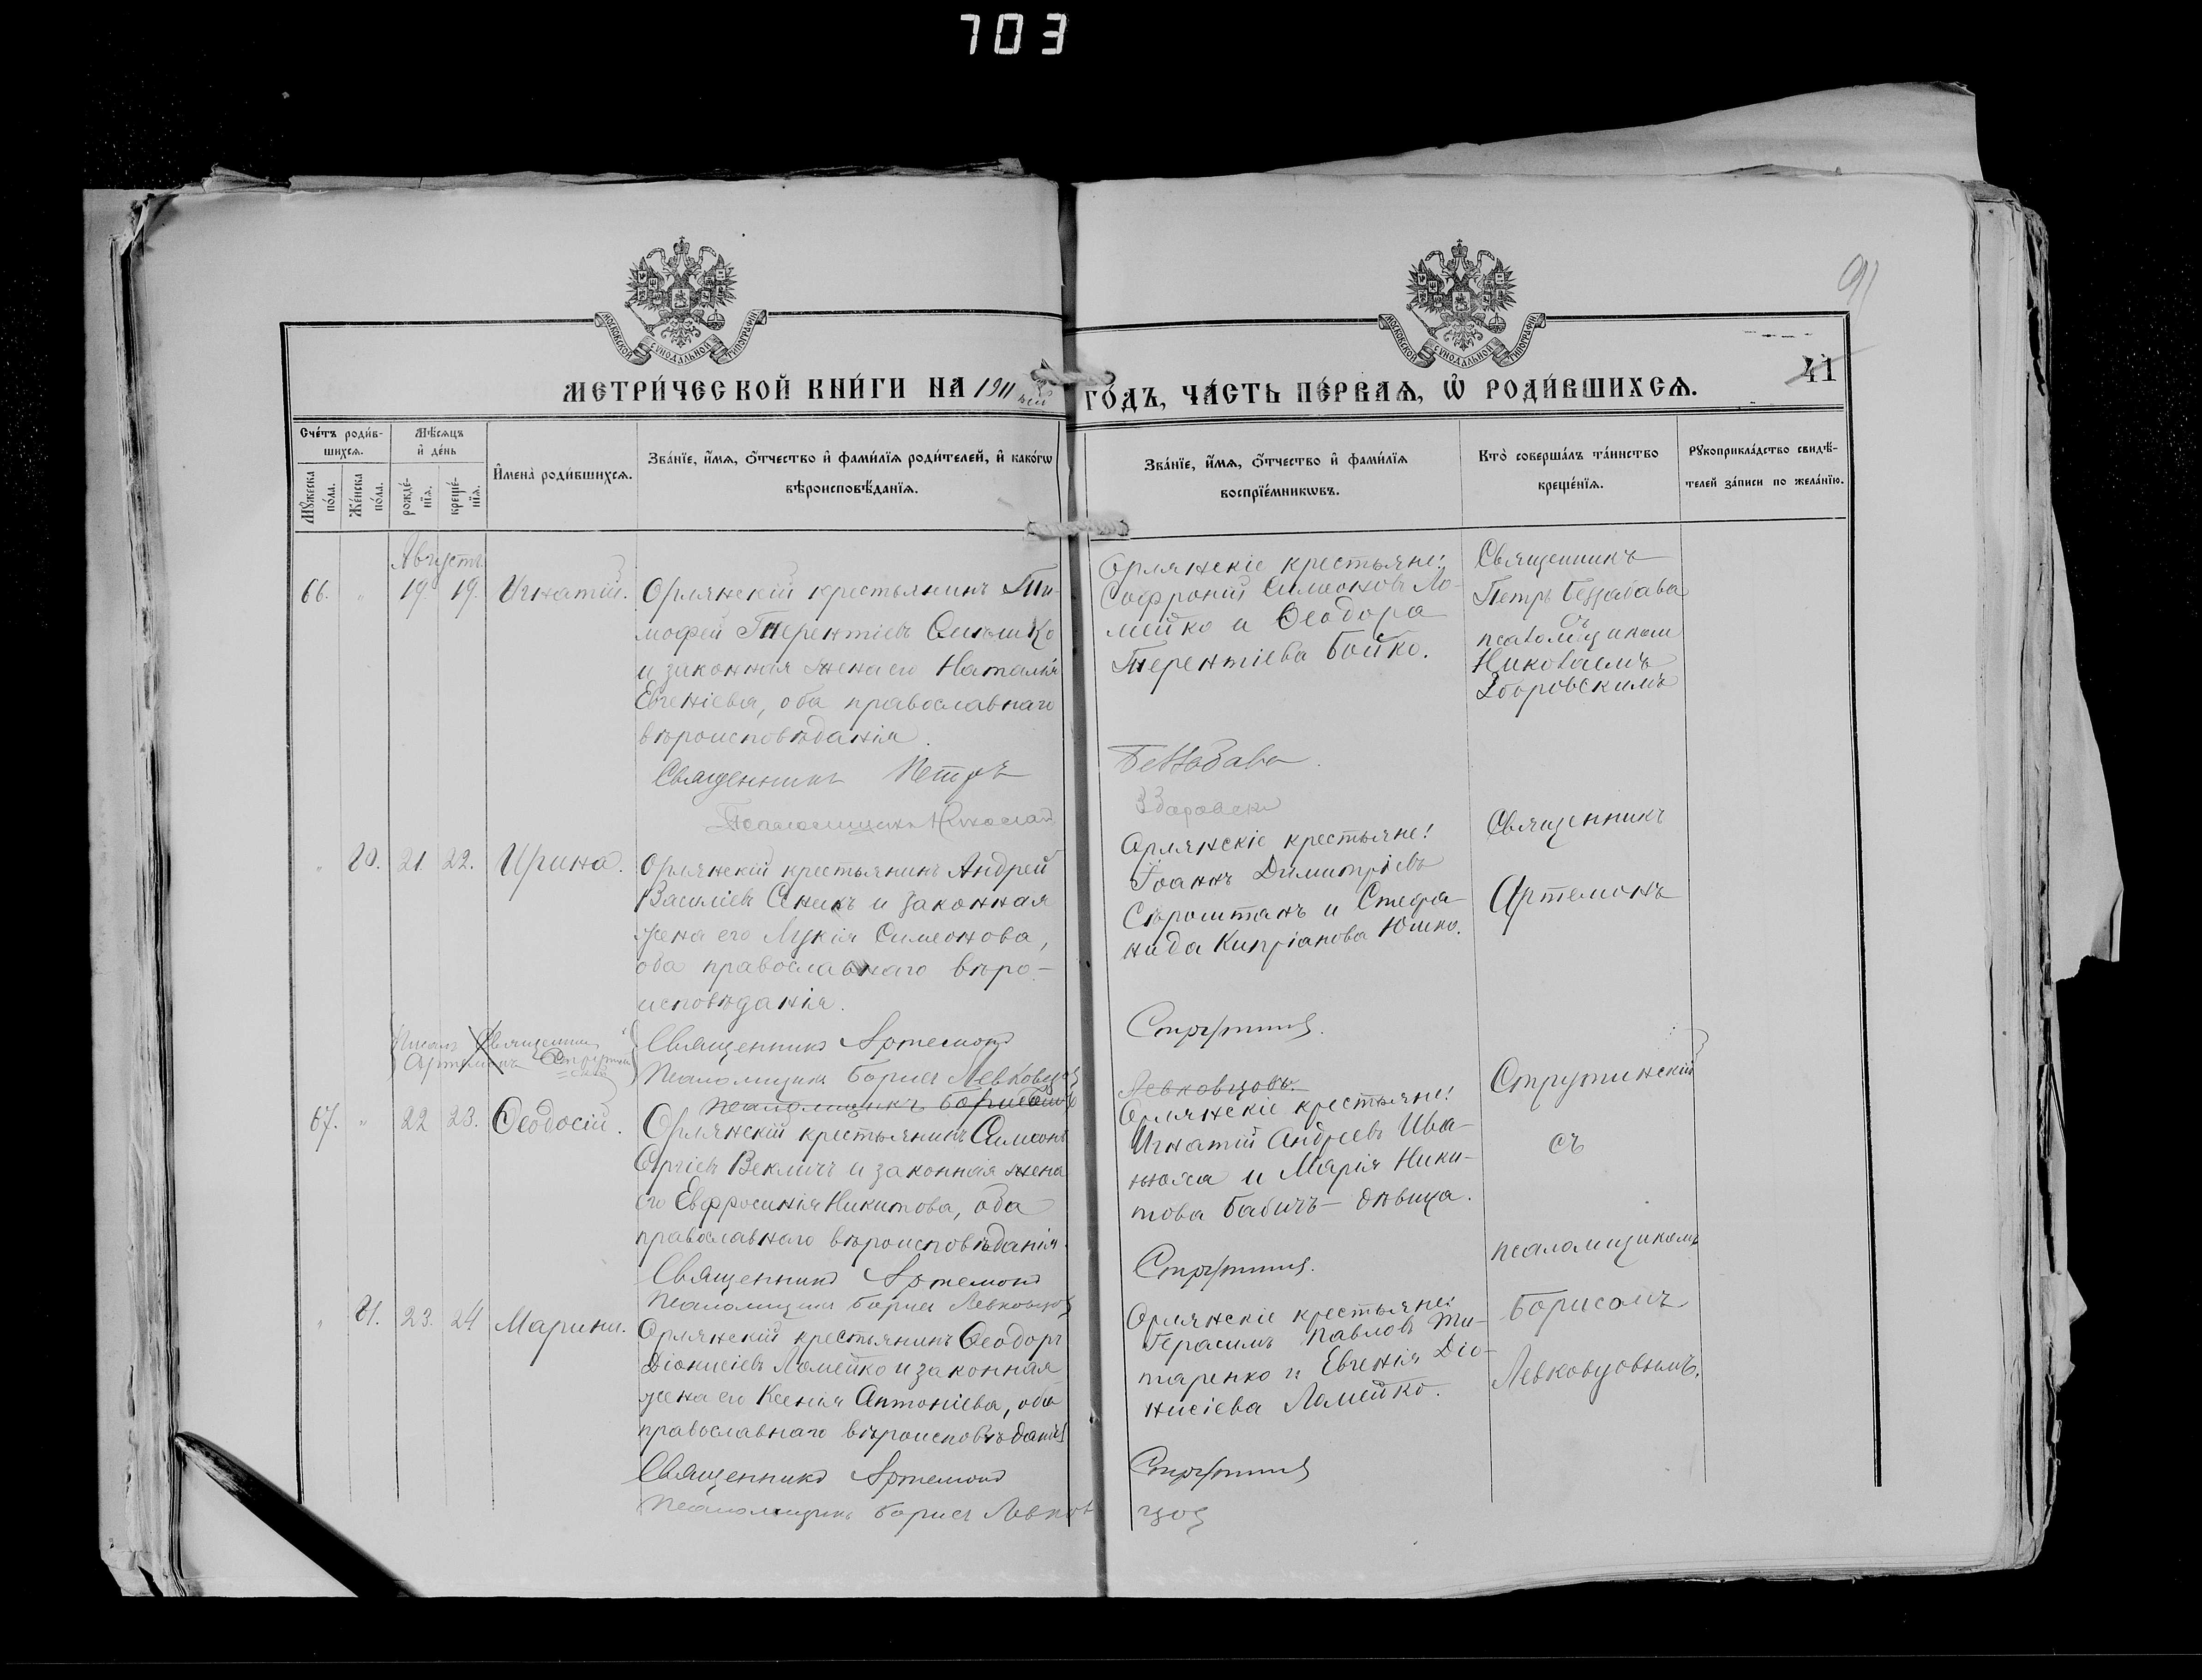 703
91
41
МОСКОВСКОЙ СѴНОДАЛЬНОЙ ТИПОГРАФІИ
МОСКОВСКОЙ СѴНОДАЛЬНОЙ ТИПОГРАФІИ
МЕТРИ́ЧЕСКОЙ КНИ́ГИ НА 1911 ГО́ДЪ, ЧА́СТЬ ПЕ́РВАѦ, Ѽ РОДИ́ВШИХСѦ.
Сче́тъ роди́в-
шихсѧ.
Мꙋ́жеска по́ла.
Же́нска по́ла.
Мѣ́сѧцъ
и҆ де́нь
рожде́-
нїѧ.
креще́-
нїѧ.
И҆мена̀ роди́вшихсѧ.
Зва́нїе, и҆́мѧ, ѻ҆́тчество и҆ фами́лїѧ роди́телей, и҆ како́гѡ
вѣроисповѣ́данїѧ.
Зва́нїе, и҆́мѧ, ѻ҆́тчество и҆ фами́лїѧ
воспрїе́мникѡвъ.
Кто̀ соверша́лъ та́инство
креще́нїѧ.
Рꙋкоприкла́дство свидѣ́-
телей за́писи по жела́нїю.
Августъ
66. " 19. 19. Игнатій.
Орлянскій крестьянинъ Ти-
мофей Терентіевъ
и законная жена его Наталія
Евгеніева, оба православнаго
вѣроисповѣданія.
Священникъ Петръ
Псаломщикъ Николай
Орлянскіе крестьяне:
Софроній Симеоновъ Ло-
мейко и Ѳеодора
Терентіева Бойко.
Беззабава.
Збаровскі
Священникъ
Петръ Беззабава
съ
псаломщикомъ
Николаемъ
Зборовскимъ
" 70. 21. 22. Ирина.
Орлянскій крестьянинъ Андрей
Василіевъ Сеникъ и законная
жена его Лукія Симеонова,
оба православнаго вѣро-
исповѣданія.
Священникъ Артемонъ
Псаломщикъ Борисъ Левковцов
Псаломщикъ Борисъ
Орлянскіе крестьяне:
Іоаннъ Димитріевъ
Сыроштанъ и Стефа-
нида Кипріанова Юшко.
Струтинс.
Левковцовъ.
Священникъ
Артемонъ
Струтинскій
съ
псаломщикомъ
Борисомъ
Левковцовымъ.
Священникъ
Артемонъ
67. " 22 23. Ѳеодосій.
Орлянскій крестьянинъ Симеонъ
Сергіевъ Векличъ и законная жена
его Евфросинія Никитова, оба
православнаго вѣроисповѣданія.
Священникъ Артемонъ
Псаломщикъ Борисъ Левковцов
Орлянскіе крестьяне:
Игнатій Андреевъ Ива-
нюха и Марія Ники-
това Бабичъ – дѣвица.
Струтинс.
" 71. 23. 24 Марина.
Орлянскій крестьянинъ Ѳеодоръ
Діонисіевъ Ломейко и законная
жена его Ксенія Антоніева, оба
православнаго вѣроисповѣданія
Священникъ Артемонъ
Псаломщикъ Борисъ Левков
Орлянскіе крестьяне:
Герасимъ Павловъ Ти-
таренко и Евгенія Діо-
нисіева Ломейко.
Струтинс
цов